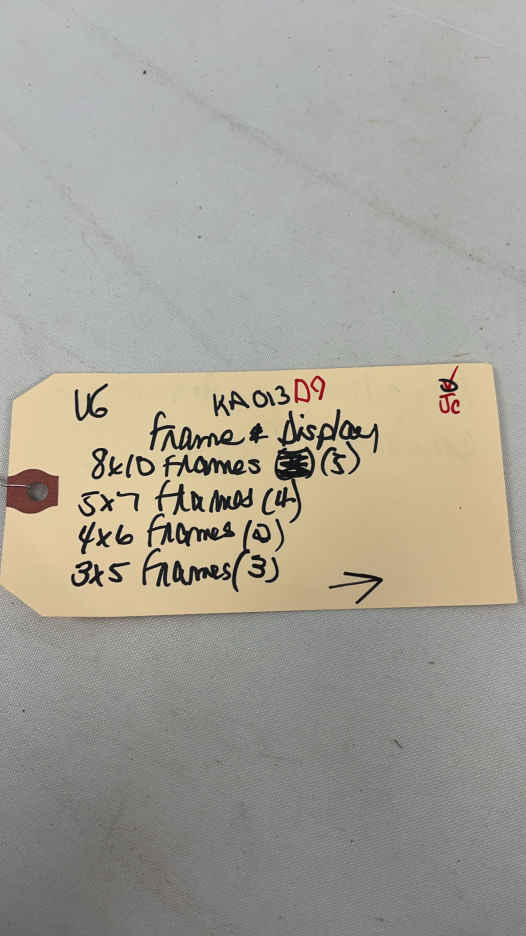 V6 KA013 D9
Frame & Display
8x10 Frames (5)
5x7 Frames (4)
4x6 Frames (0)
3x5 Frames (3)